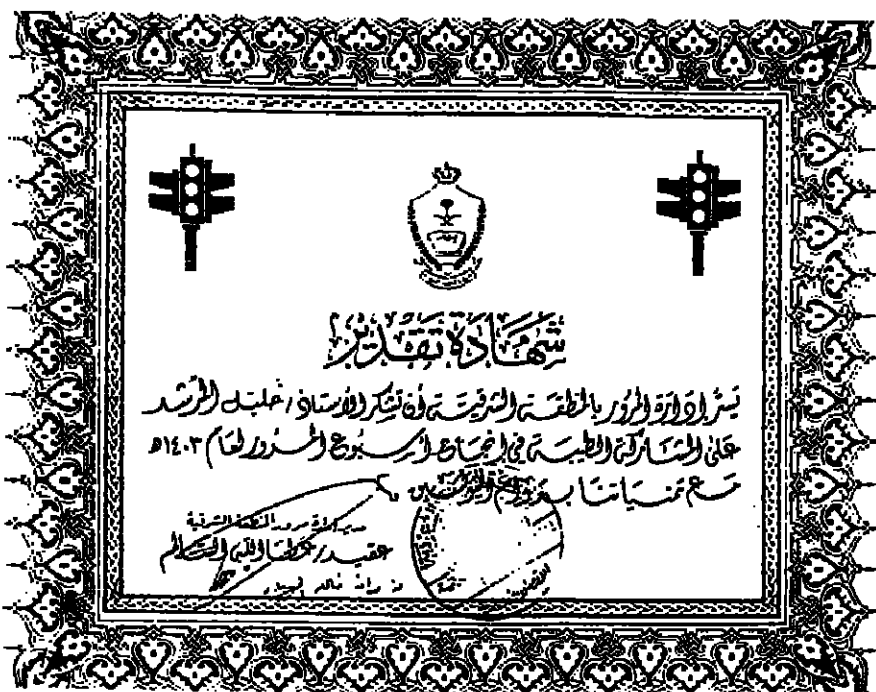 شهادة تقدير
تسر إدارة المرور بالمنطقة الشرقية أن تشكر الأستاذ / خليل المرشد
على المشاركة الطيبة في إنجاح أسبوع المرور لعام ١٤٠٣هـ
مع تمنياتنا بدوام التوفيق
مدير إدارة مرور المنطقة الشرقية
عقيد / عطا الله